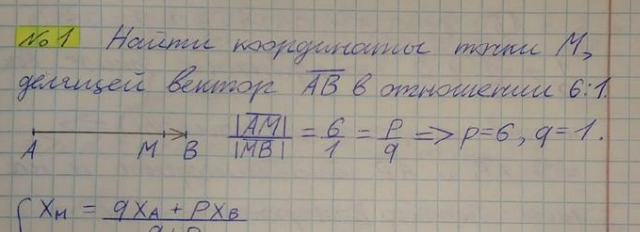 №1 Найти координаты точки M,
делящей вектор AB в отношении 6:1.
A M B |AM| / |MB| = 6/1 = p/q => p=6, q=1.
{ x_M = (q x_A + p x_B) / (q+p)